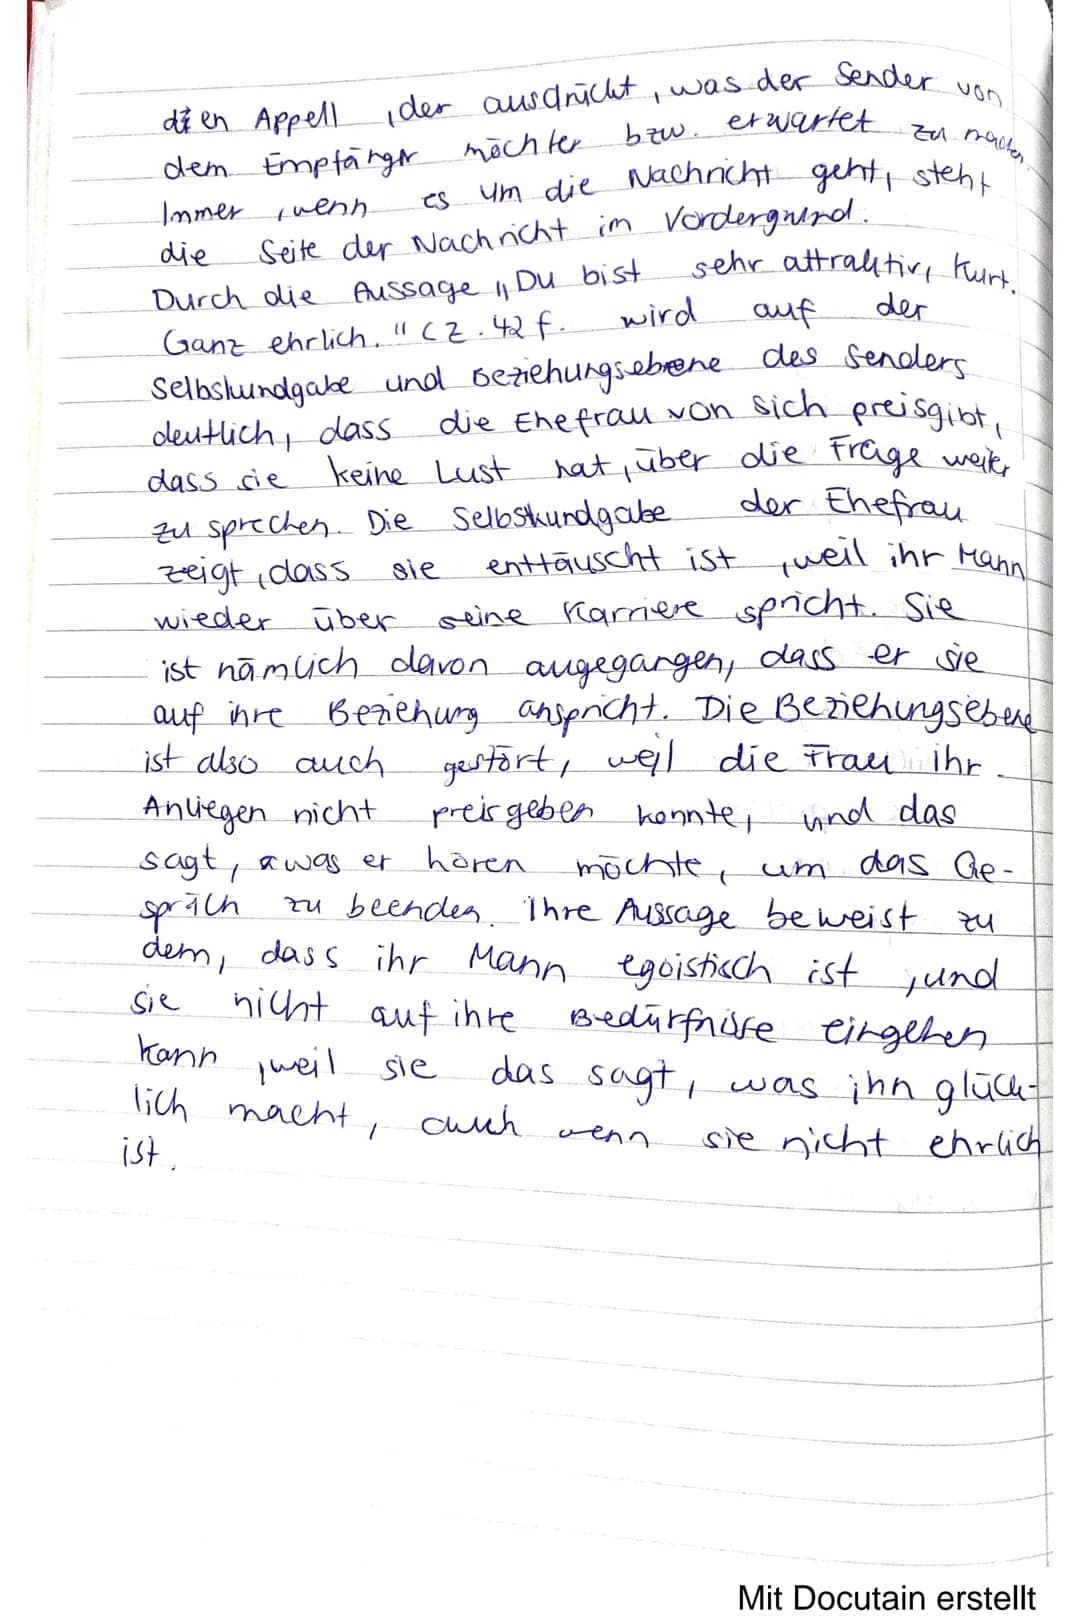 den Appell, der ausdrückt, was der Sender von
dem Empfänger möchter bzw. erwartet zu machen.
Immer, wenn es um die Nachricht geht, steht
die Seite der Nachricht im Vordergrund.
Durch die Aussage "Du bist sehr attraktiv, Kurt.
Ganz ehrlich." (Z. 42 f. wird auf der
Selbskundgabe und Beziehungsebene des Senders
deutlich, dass die Ehefrau von sich preisgibt,
dass sie keine Lust hat, über die Frage weiter
zu sprechen. Die Selbstkundgabe der Ehefrau
zeigt, dass sie enttäuscht ist, weil ihr Mann
wieder über seine Karriere spricht. Sie
ist nämlich davon augegangen, dass er sie
auf ihre Beziehung anspricht. Die Beziehungsebene
ist also auch gestört, weil die Frau ihr
Anliegen nicht preisgeben konnte, und das
sagt, was er hören möchte, um das Ge-
spräch zu beenden. Ihre Aussage beweist zu
dem, dass ihr Mann egoistisch ist, und
sie nicht auf ihre Bedürfnisse eingehen
kann, weil sie das sagt, was ihn glück-
lich macht, auch wenn sie nicht ehrlich
ist.
Mit Docutain erstellt